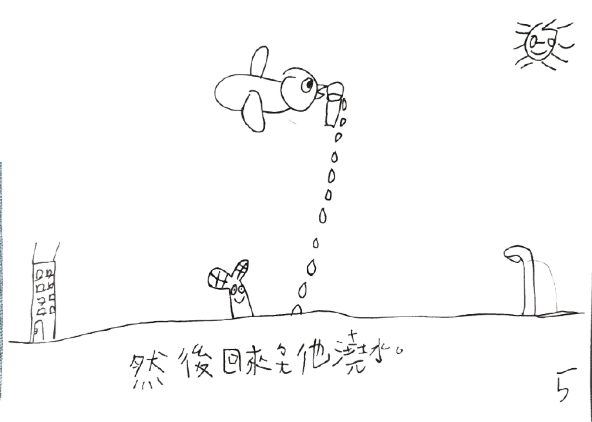 然後回來幫他澆水。
5